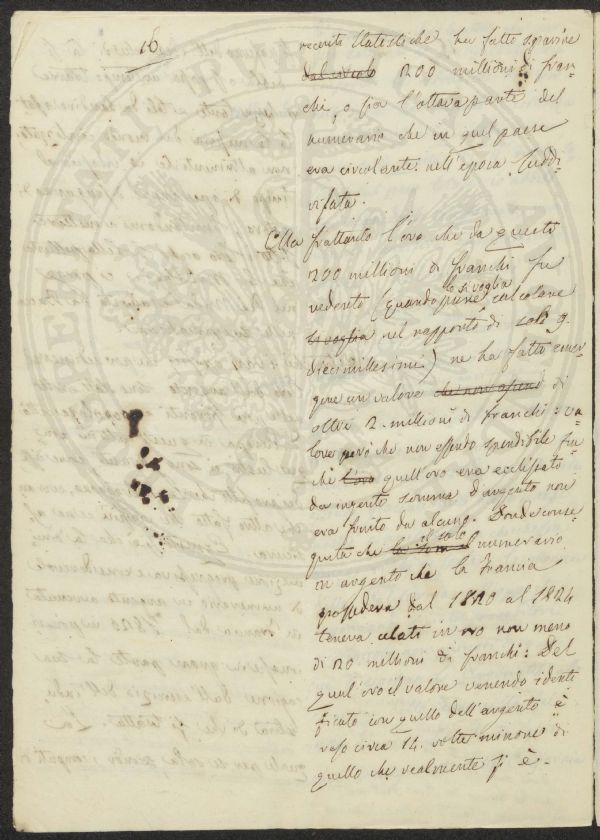 16.
recenti statistiche ha fatto sparire
dal circolo 200 millioni di fran-
chi, o sia l'ottava parte del
numerario che in quel paese
era circolante nell'epoca suddi-
visata.
Ma frattanto l'oro che da questi
200 millioni di franchi fu
veduto (quando pure lo si voglia calcolare
si voglia nel rapporto di solo 9.
diecimillesimi) ne ha fatto emer-
gere un valore di
oltre 2 millioni di franchi: va-
lore però che non essendo spendibile fin
chè l'oro quell'oro era ecclissato
da ingente somma d'argento non
era fruito da alcuno. Donde conse-
guita che il solo numerario
in argento che la Francia
possedeva dal 1820 al 1824
teneva celati in oro non meno
di 20 millioni di franchi: Del
qual oro il valore venendo identi
ficato con quello dell'argento è
reso circa 14 volte minore di
quello che realmente si è.